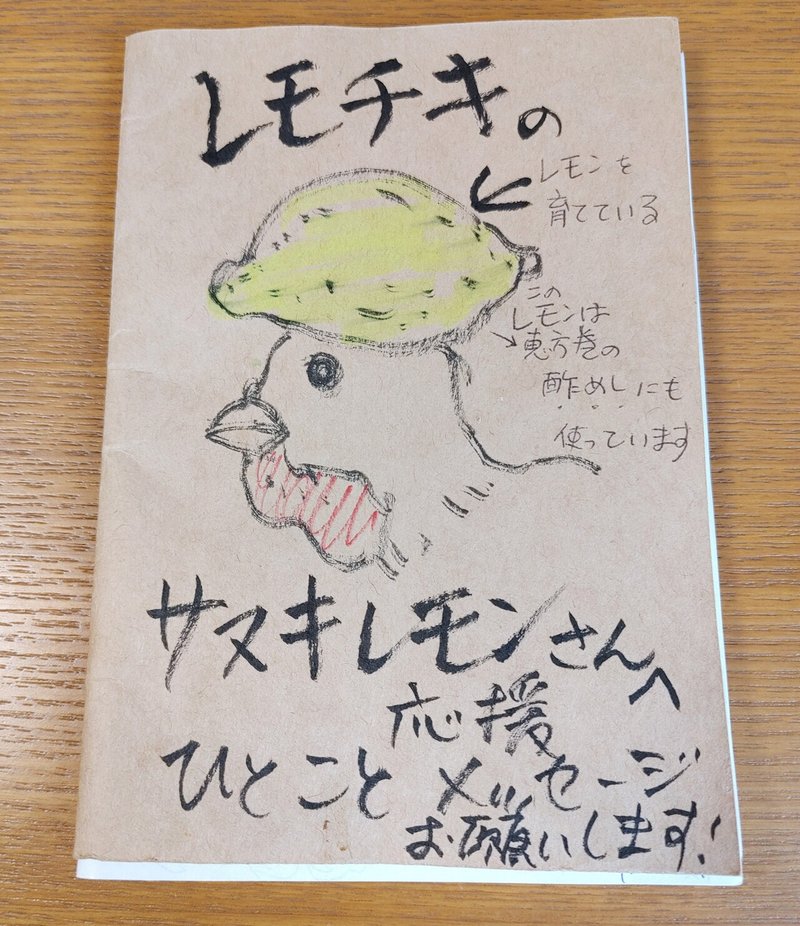 レモチキの
レモンを
育てている
この
レモンは
恵方巻の
酢めしにも
使っています
サヌキレモンさんへ
応援
ひとことメッセージ
お願いします!